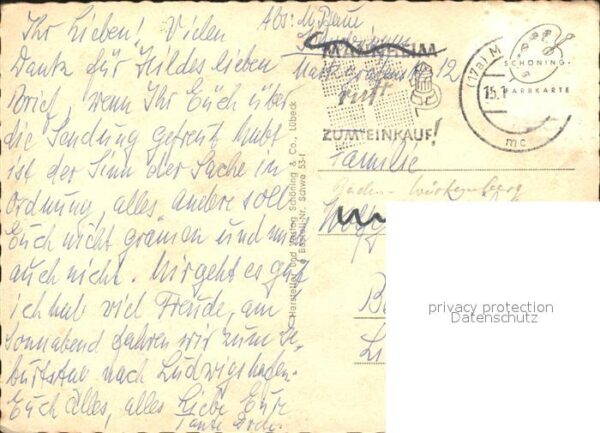 Ihr Lieben! Vielen
Dank für Hildes lieben
Brief, wenn Ihr Euch über
die Sendung gefreut habt
ist der Sinn der Sache in
Ordnung, alles andere soll
Euch nicht grämen und mich
auch nicht. Mir geht es gut
ich hab viel Freude, am
Sonnabend fahren wir zum Ge-
burtstag nach Ludwigshafen.
Euch alles, alles Liebe Eure
Tante
Abs: M. Baum
MANNHEIM
12
ruft
ZUM EINKAUF!
(17a) M
15.1
mc
SCHÖNING-
FARBKARTE
Hersteller und Verlag Schöning & Co., Lübeck
Bestell-Nr. Schwe 53-1
Familie
Baden-Württemberg
privacy protection
Datenschutz